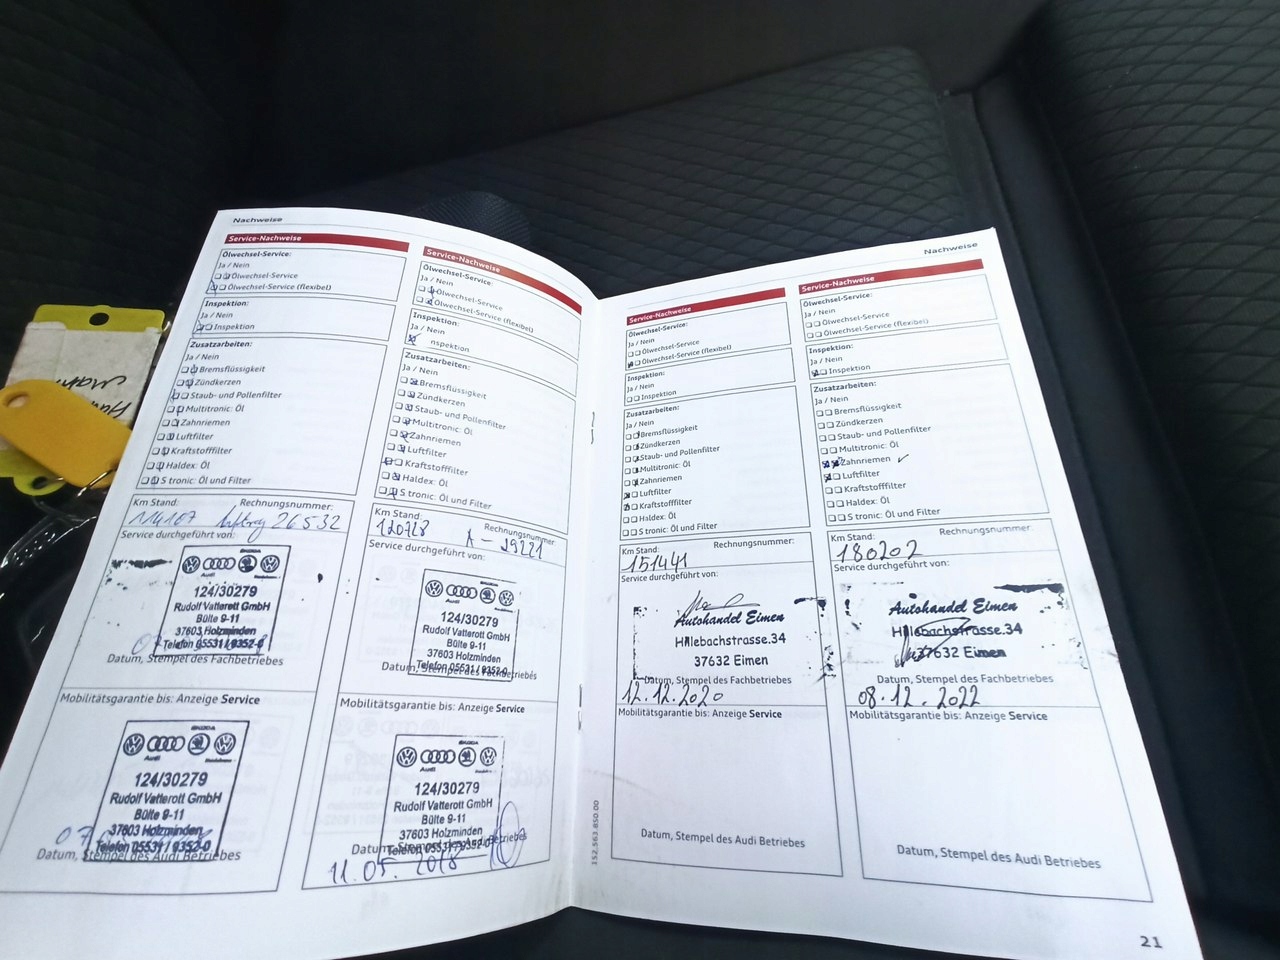 Nachweise
Service-Nachweise
Ölwechsel-Service:
Ja / Nein
Ölwechsel-Service
Ölwechsel-Service (flexibel)
Inspektion:
Ja / Nein
Inspektion
Zusatzarbeiten:
Ja / Nein
Bremsflüssigkeit
Zündkerzen
Staub- und Pollenfilter
Multitronic: Öl
Zahnriemen
Luftfilter
Kraftstofffilter
Haldex: Öl
S tronic: Öl und Filter
Km Stand: Rechnungsnummer:
26532
Service durchgeführt von:
ŠKODA
Audi
124/30279
Rudolf Vatterott GmbH
Bülte 9-11
37603 Holzminden
Telefon 05531 / 9352-0
Datum, Stempel des Fachbetriebes
Mobilitätsgarantie bis: Anzeige Service
ŠKODA
Audi
124/30279
Rudolf Vatterott GmbH
Bülte 9-11
37603 Holzminden
Telefon 05531 / 9352-0
Datum, Stempel des Audi Betriebes
Service-Nachweise
Ölwechsel-Service:
Ja / Nein
Ölwechsel-Service
Ölwechsel-Service (flexibel)
Inspektion:
Ja / Nein
nspektion
Zusatzarbeiten:
Ja / Nein
Bremsflüssigkeit
Zündkerzen
Staub- und Pollenfilter
Multitronic: Öl
Zahnriemen
Luftfilter
Kraftstofffilter
Haldex: Öl
S tronic: Öl und Filter
Km Stand: Rechnungsnummer:
120728 A-29221
Service durchgeführt von:
124/30279
Rudolf Vatterott GmbH
Bülte 9-11
37603 Holzminden
Telefon 05531 / 9352-0
Datum, Stempel des Fachbetriebes
Mobilitätsgarantie bis: Anzeige Service
ŠKODA
Audi
124/30279
Rudolf Vatterott GmbH
Bülte 9-11
37603 Holzminden
Telefon 05531 / 9352-0
Datum, Stempel des Audi Betriebes
11.05.2018
Nachweise
Service-Nachweise
Ölwechsel-Service:
Ja / Nein
Ölwechsel-Service
Ölwechsel-Service (flexibel)
Inspektion:
Ja / Nein
Inspektion
Zusatzarbeiten:
Ja / Nein
Bremsflüssigkeit
Zündkerzen
Staub- und Pollenfilter
Multitronic: Öl
Zahnriemen
Luftfilter
Kraftstofffilter
Haldex: Öl
S tronic: Öl und Filter
Km Stand: Rechnungsnummer:
151441
Service durchgeführt von:
Autohandel Eimen
Hillebachstrasse.34
37632 Eimen
Datum, Stempel des Fachbetriebes
12.12.2020
Mobilitätsgarantie bis: Anzeige Service
Datum, Stempel des Audi Betriebes
152.563.850.00
Service-Nachweise
Ölwechsel-Service:
Ja / Nein
Ölwechsel-Service
Ölwechsel-Service (flexibel)
Inspektion:
Ja / Nein
Inspektion
Zusatzarbeiten:
Ja / Nein
Bremsflüssigkeit
Zündkerzen
Staub- und Pollenfilter
Multitronic: Öl
Zahnriemen
Luftfilter
Kraftstofffilter
Haldex: Öl
S tronic: Öl und Filter
Km Stand: Rechnungsnummer:
180202
Service durchgeführt von:
Autohandel Eimen
Hillebachstrasse.34
37632 Eimen
Datum, Stempel des Fachbetriebes
08.12.2022
Mobilitätsgarantie bis: Anzeige Service
Datum, Stempel des Audi Betriebes
21